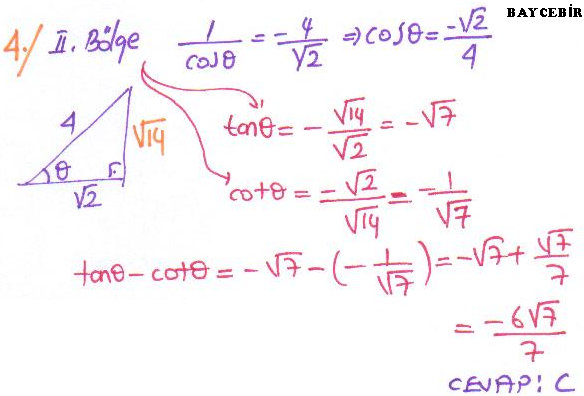 BAYCEBİR
4./ II. Bölge 1/cosθ = -4/√2 ⇒ cosθ = -√2/4
4 √14 θ √2
tanθ = -√14/√2 = -√7
cotθ = -√2/√14 = -1/√7
tanθ - cotθ = -√7 - (-1/√7) = -√7 + √7/7
= -6√7/7
CEVAP: C